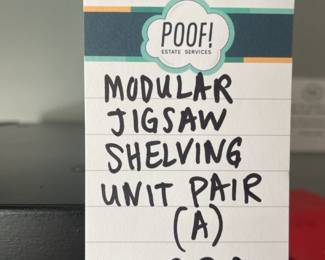 POOF!
ESTATE SERVICES
MODULAR
JIGSAW
SHELVING
UNIT PAIR
(A)